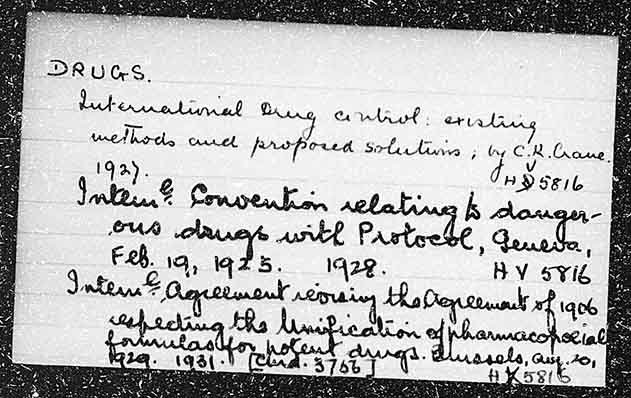 DRUGS.
International Drug control: existing
methods and proposed solutions; by C.K. Crane.
1927. HV 5816
Intern'l. Convention relating to danger-
ous drugs with Protocol, Geneva,
Feb. 19, 1925. 1928. HV 5816
Intern'l. Agreement revising the Agreement of 1906
respecting the Unification of pharmacopoeial
formulas for potent drugs. Brussels, Aug. 20,
1929. 1931. [Cmd. 3756] HV 5816